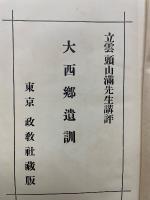 立雲頭山滿先生講評
大西郷遺訓
東京政教社藏版